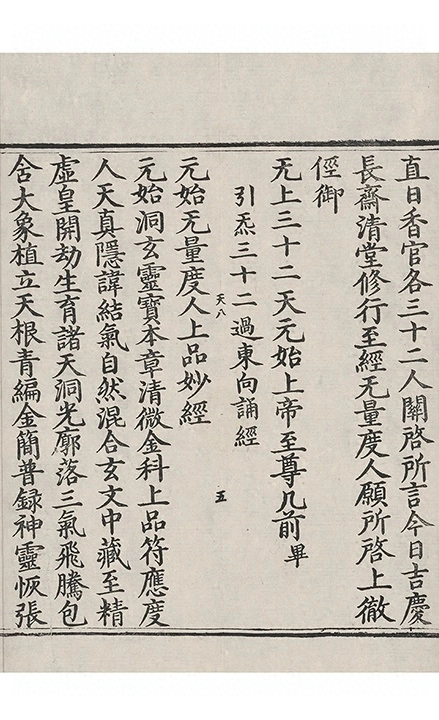 直日香官各三十二人關啓所言今日吉慶
長齋清堂修行至經无量度人願所啓上徹
俓御
无上三十二天元始上帝至尊几前畢
引炁三十二過東向誦經
天八
五
元始无量度人上品妙經
元始洞玄靈寶本章清微金科上品符應度
人天真隱諱結氣自然混合玄文中藏至精
虛皇開劫生育諸天洞光廓落三氣飛騰包
含大象植立天根青編金簡普録神靈恢張